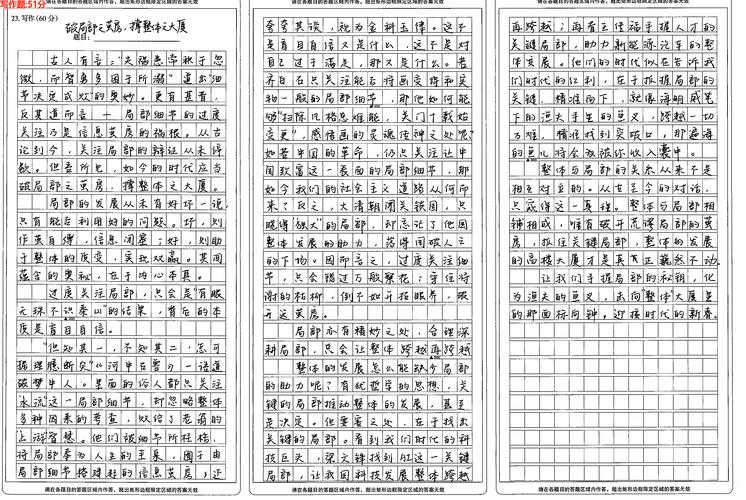 写作题:51分
请在各题目的答题区域内作答，超出矩形边框限定区域的答案无效
请在各题目的答题区域内作答，超出矩形边框限定区域的答案无效
请在各题目的答题区域内作答，超出矩形边框限定区域的答案无效
23. 写作(60分)
题目：破局部之茧房，撑整体之大厦
古人有言："夫祸患常积于忽
微，而智勇多困于所溺"道出"细
节决定成败"的奥妙。更有甚者，
反其道而言——局部细节的过度
关注乃是信息茧房的福根。从古
论到今，关注局部的辩证从未停
歇。但吾所见，如今的时代应当
破局部之茧房，撑整体之大厦。
局部的发展从未有好坏一说，
只有能否利用好的问题。坏，则
作茧自缚，信息闭塞；好，则助
于整体的质变，实现双赢。其间
蕴含的奥秘，在于内心本真。
过度关注局部，只会是"有眼
之珠不识泰山"的结果，背后的本
质是盲目自信。
"但知其一，不知其二，怎可
据理臆断欤"《河中石兽》一语道
破梦中人。里面的俗人都只关注
水流这一局部细节，却忽略整体
多种因素的考查，败给了老翁的
上游智慧。他们被细节所桎梏，
将局部奉为人生的圭臬，囿于由
局部细节搭建起的信息茧房，还
夸夸其谈，视为金科玉律。这不
是盲目自信又是什么，这不是对
自己过于满足，那又是什么。若
齐白石只关注能否将画变得和实
物一般的局部细节，那他如何能
够"扫除凡格总难能，关门十载始
变更"，感悟画的灵魂传神之处呢？
如若中国的革命，仍只关注让中
国致富这一表面的局部细节，那
如今我们的社会主义道路从何而
来？反之，大清朝闭关锁国，只
晓得"强大"的局部，却忘记了他国
整体发展的助力，落得国破人亡
的下场。因而言之，过度关注细
节，只会错过万般繁花；守住将
谢的枯枝，倒不如开拓眼界，破
开这茧房。
局部亦有精妙之处，合理深
耕局部，只会让整体跨越再跨越
整体的发展怎么能缺少局部
的助力呢？有忧哲学的思想，关
键的局部推动整体的发展，甚至
是决定。但重要之处，在于找出
关键的局部。看到我们时代的科
技巨头，梁文锋找到AI这一关键
局部，让我国科技发展整体跨越
再跨越；再看王传福手握人才的
关键局部，助力新能源汽车的整
体发展。他们的时代似在告诉我
们时代的红利，在于抓握局部的
关键，精准而下，就像海明威笔
下的渔夫手里的鱼叉，跨越一切
万难，精准找到突破口，那遍海
的鱼儿将会被被你收入囊中。
整体与局部的关系从来不是
相互对立的。从古至今的对话，
只成得这一真理。整体与局部相
辅相成，唯有破开荒谬局部的茧
房，抓住关键局部，整体的发展
的高楼大厦才是真正巍然不动。
让我们手握局部的秘钥，化
为渔夫的鱼叉，击向整体大厦里
的那面标向钟，迎接时代的新春。
请在各题目的答题区域内作答，超出矩形边框限定区域的答案无效
请在各题目的答题区域内作答，超出矩形边框限定区域的答案无效
请在各题目的答题区域内作答，超出矩形边框限定区域的答案无效